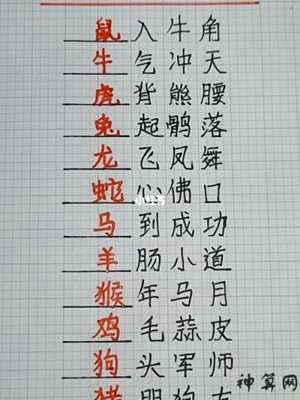 鼠入牛角
牛气冲天
虎背熊腰
兔起鹘落
龙飞凤舞
蛇心佛口
马到成功
羊肠小道
猴年马月
鸡毛蒜皮
狗头军师
猪朋狗友
神算网